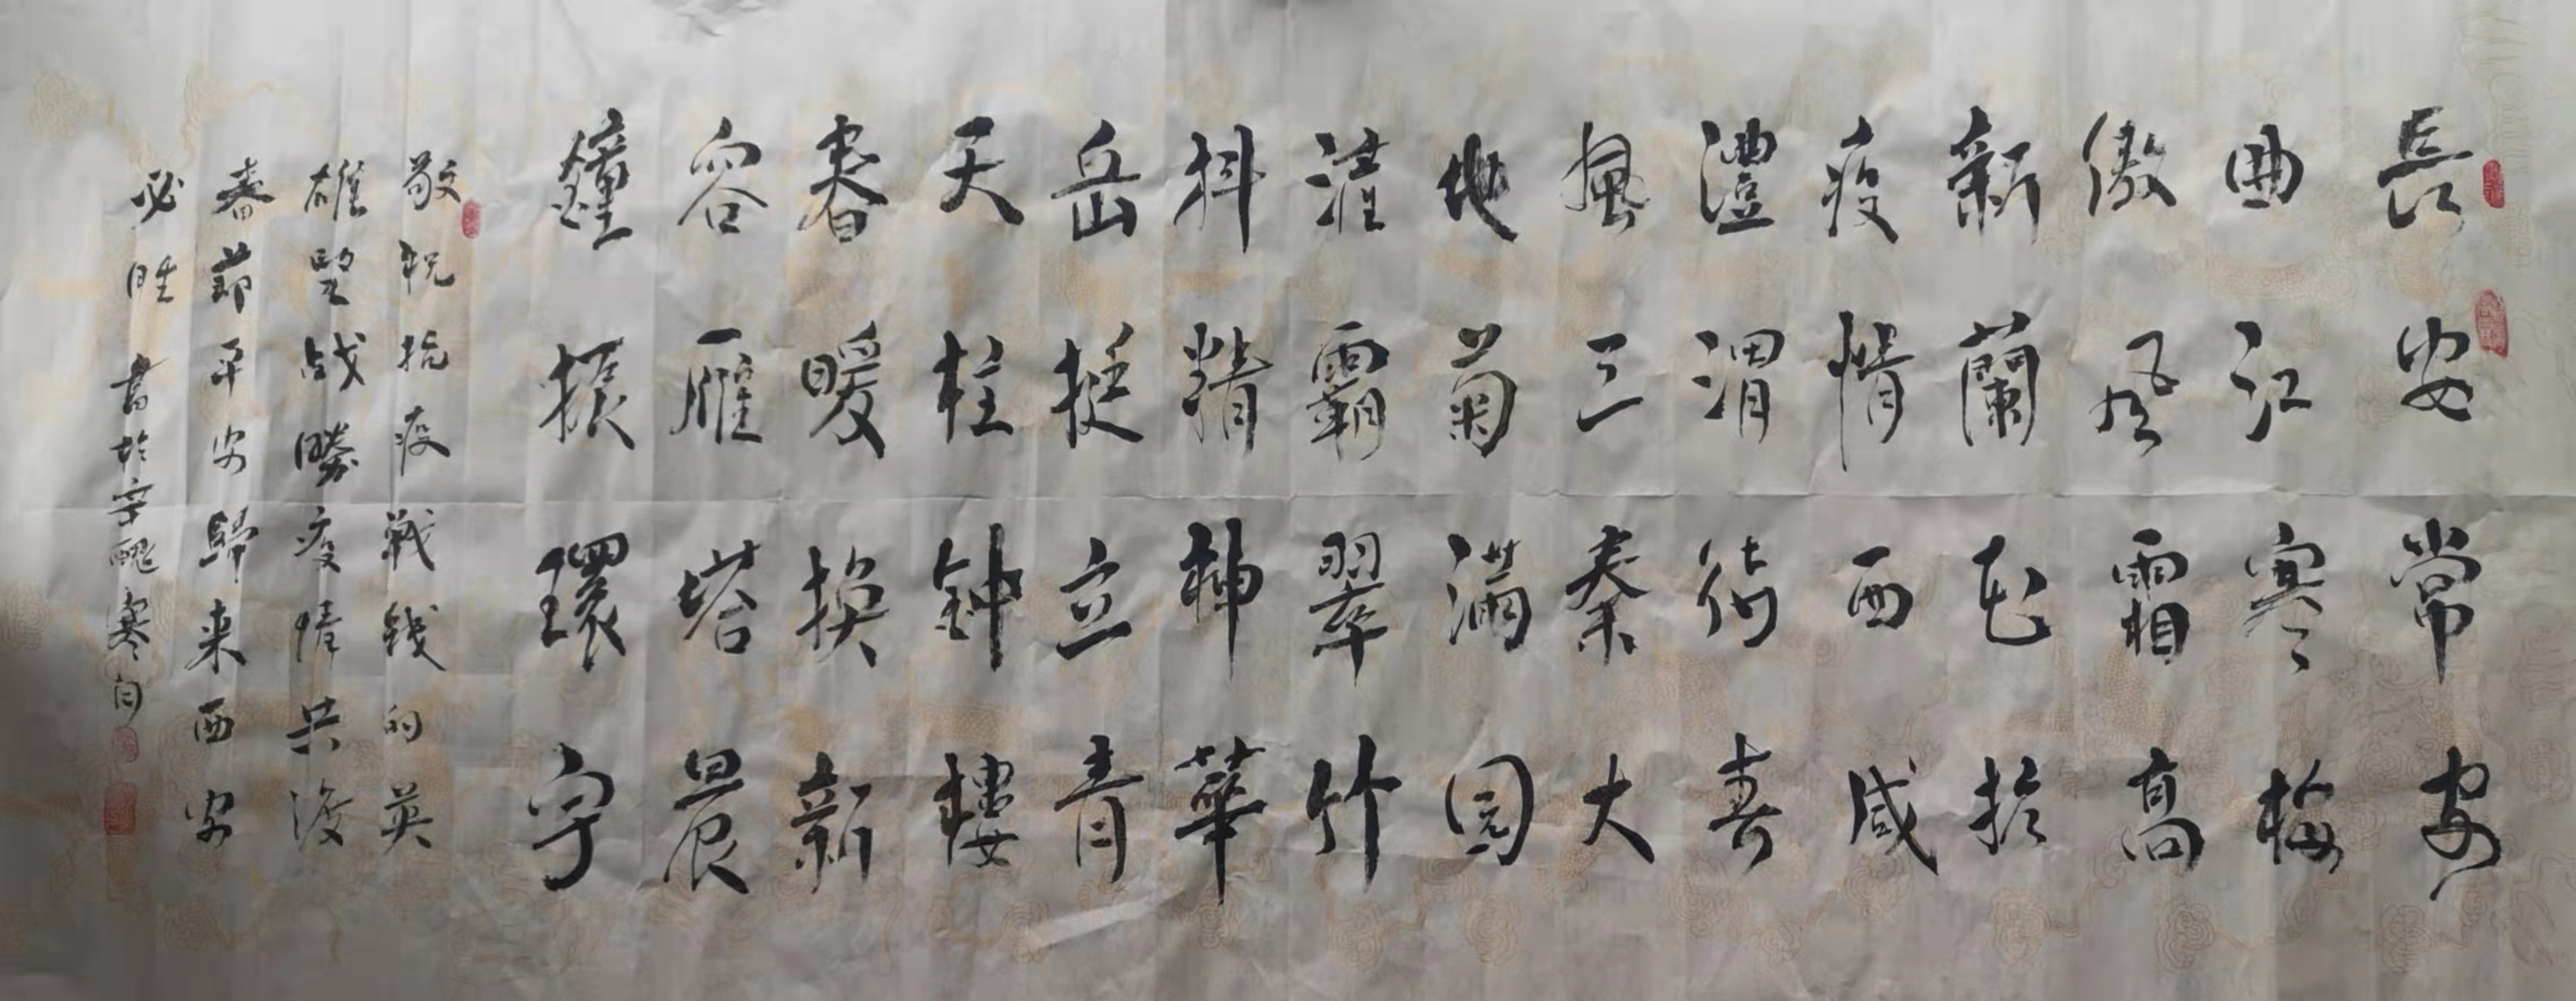 長安常安
曲江寒梅
傲风霜高
新蘭花抗
疫情西咸
灃渭待春
風三秦大
地菊滿园
滻灞翠竹
抖精神華
岳挺立青
天柱钟樓
春暖換新
容雁塔晨
鐘振環宇
敬祝抗疫戰錢的英
雄望战勝疫情共渡
春節平安歸来西安
必胜 書於守醜寒